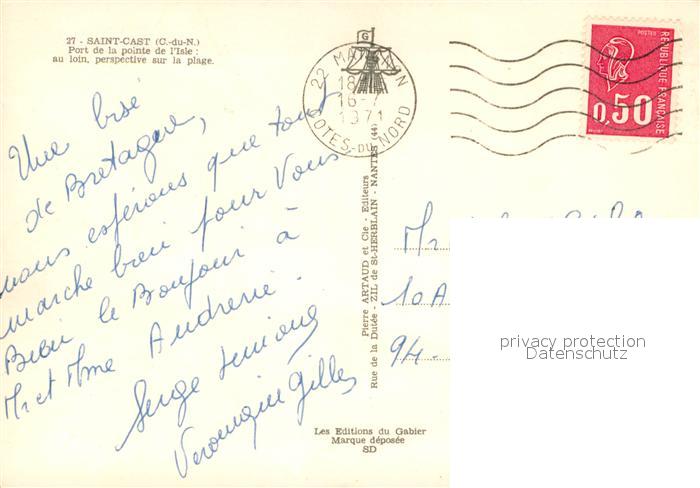 27 - SAINT-CAST (C.-du-N.)
Port de la pointe de l'Isle :
au loin, perspective sur la plage.
Une bisé
de Bretagne,
nous espérons que tout
marche bien pour Vous
Bien le Bonjour à
Mr et Mme Andrenie.
Serge
Veronique Gilles
G
22 MA N
18
16-7
1971
COTES-DU-NORD
POSTES
REPUBLIQUE FRANÇAISE
0,50
Pierre ARTAUD et Cie - Editeurs
Rue de la Dutée - ZIL de St-HERBLAIN - NANTES (44)
Mr
10 A
94-
privacy protection
Datenschutz
Les Editions du Gabier
Marque déposée
SD